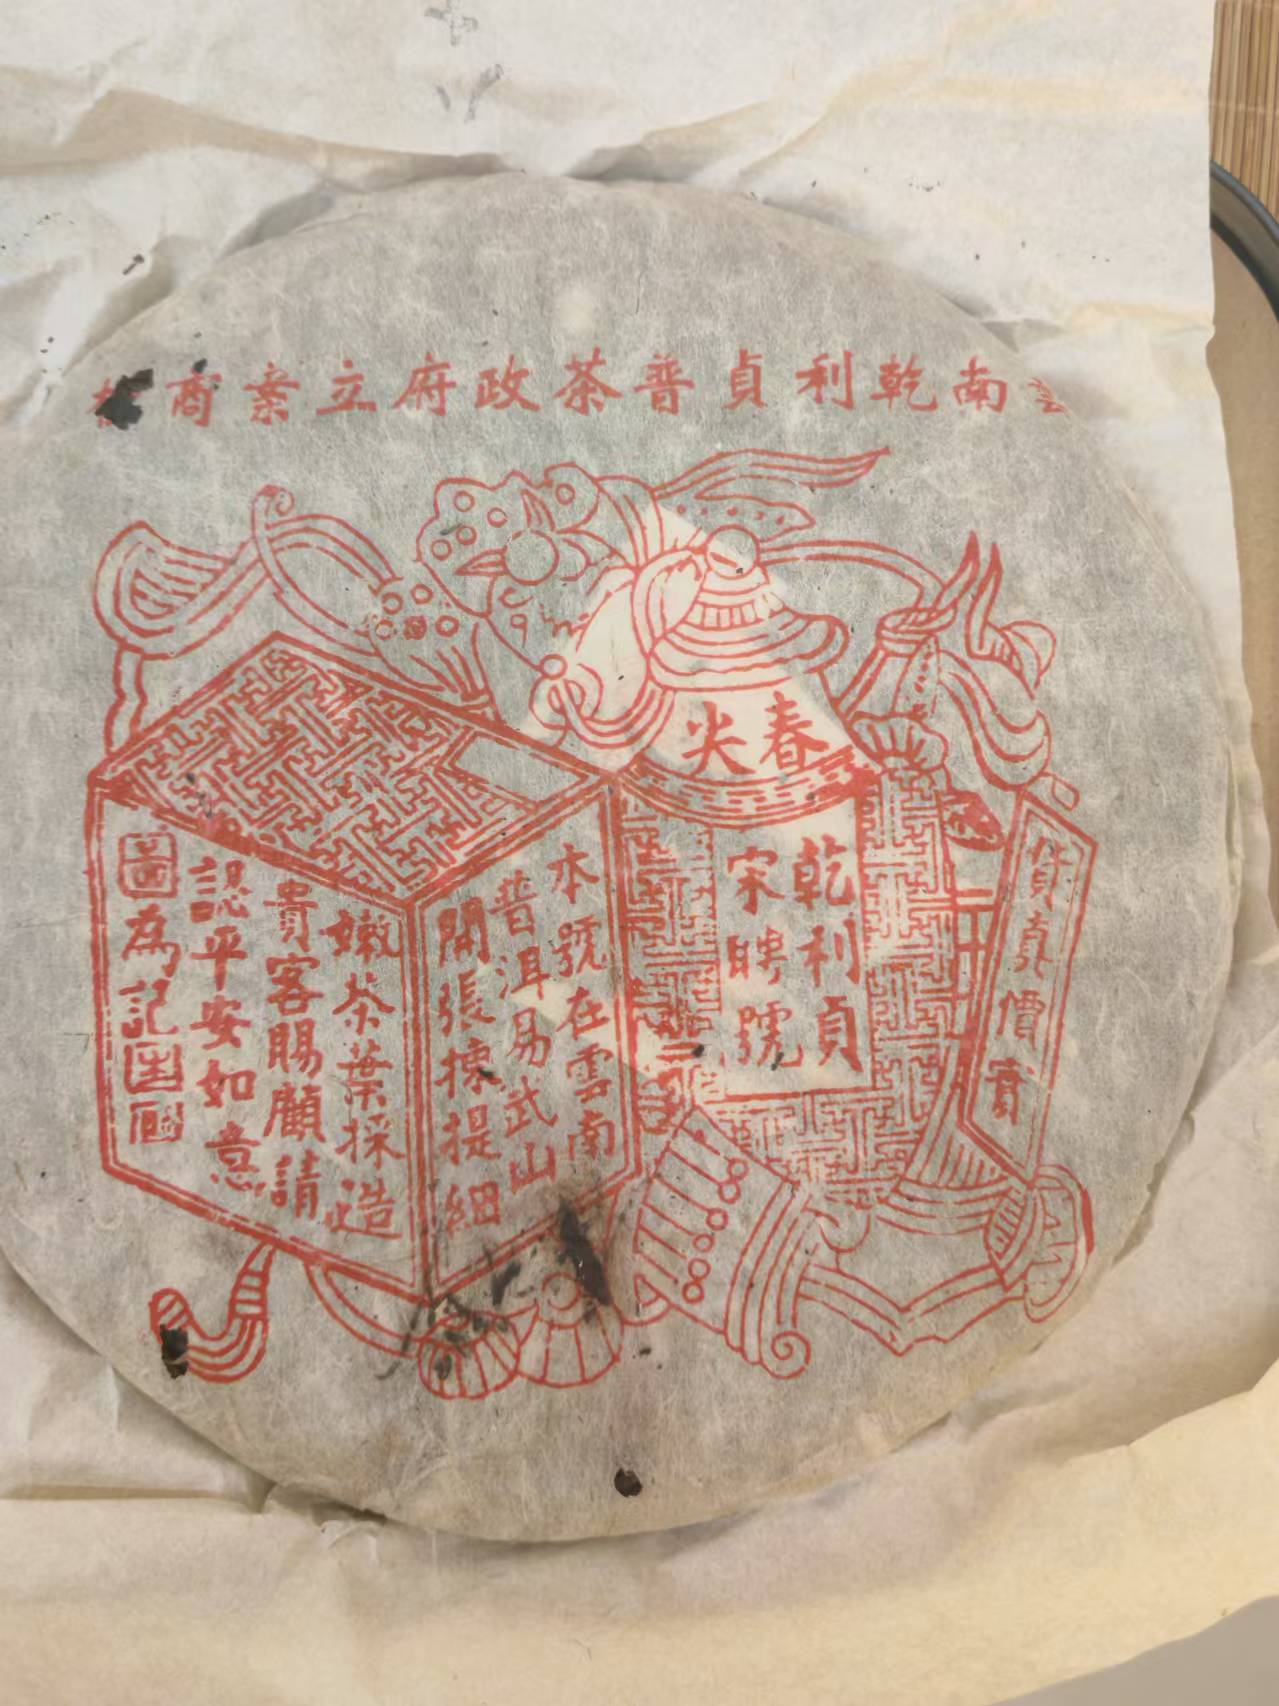 雲南乾利貞普茶政府立案商
春尖
貨真價實
乾利貞
宋聘號
本號在雲南
普洱易武山
開張揀提細
嫩茶葉採造
貴客賜顧請
認平安如意
圖為記